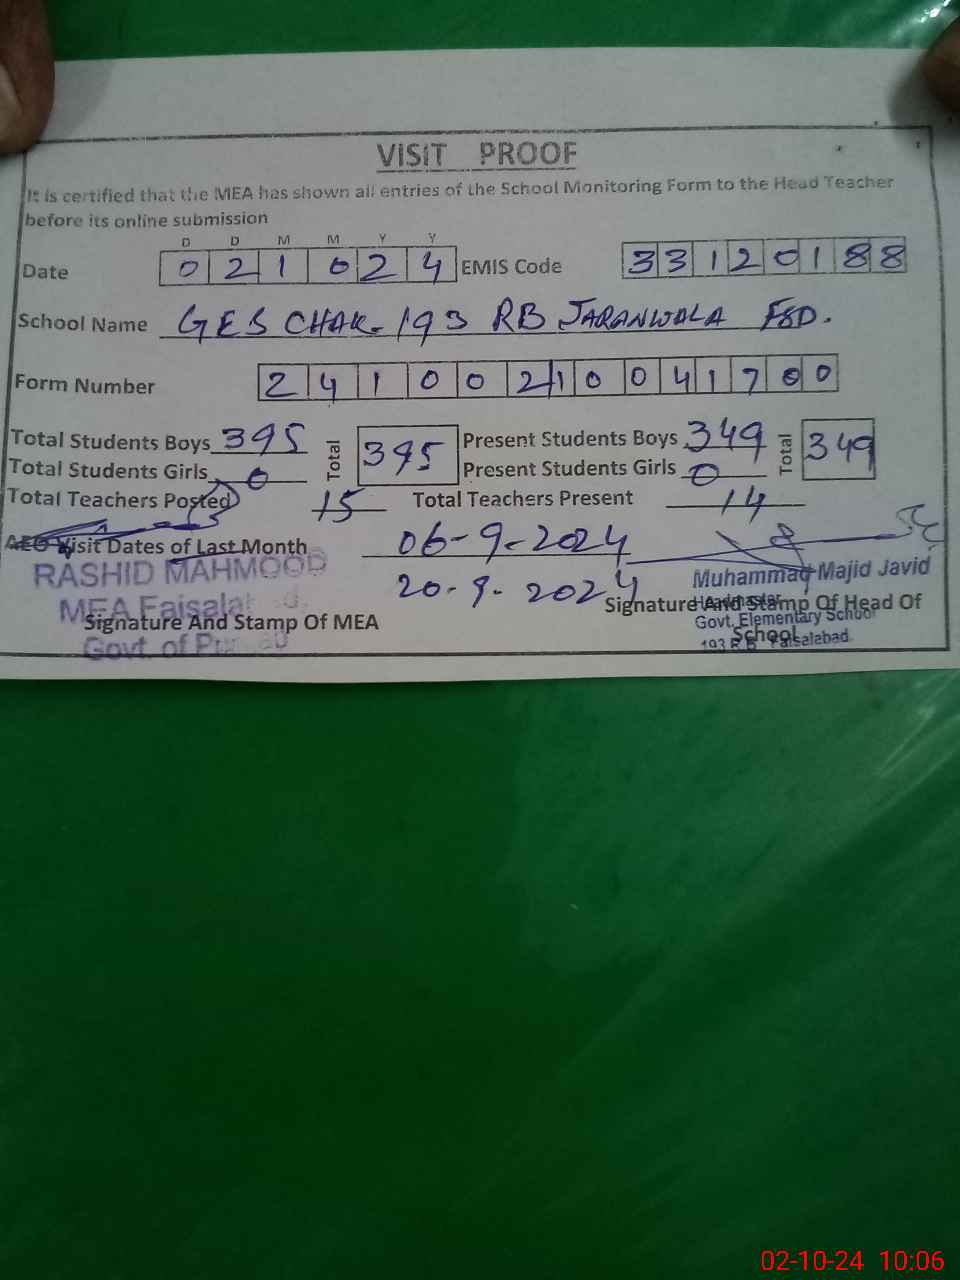 VISIT PROOF
It is certified that the MEA has shown all entries of the School Monitoring Form to the Head Teacher
before its online submission
D D M M Y Y
Date 0 2 1 0 2 4 EMIS Code 3 3 1 2 0 1 8 8
School Name GES CHAK-193 RB JARANWALA FSD.
Form Number 2 4 1 0 0 2 1 0 0 4 1 7 0 0
Total Students Boys 395 Total 395 Present Students Boys 349 Total 349
Total Students Girls 0 Present Students Girls 0
Total Teachers Posted 15 Total Teachers Present 14
AEO Visit Dates of Last Month 06-9-2024
20-9-2024
RASHID MAHMOOD
MEA Faisalabad.
Signature And Stamp Of MEA
Govt. of Punjab
Muhammad Majid Javid
Headmaster
Signature And Stamp Of Head Of
Govt. Elementary School
School
193 R.B Faisalabad.
02-10-24 10:06